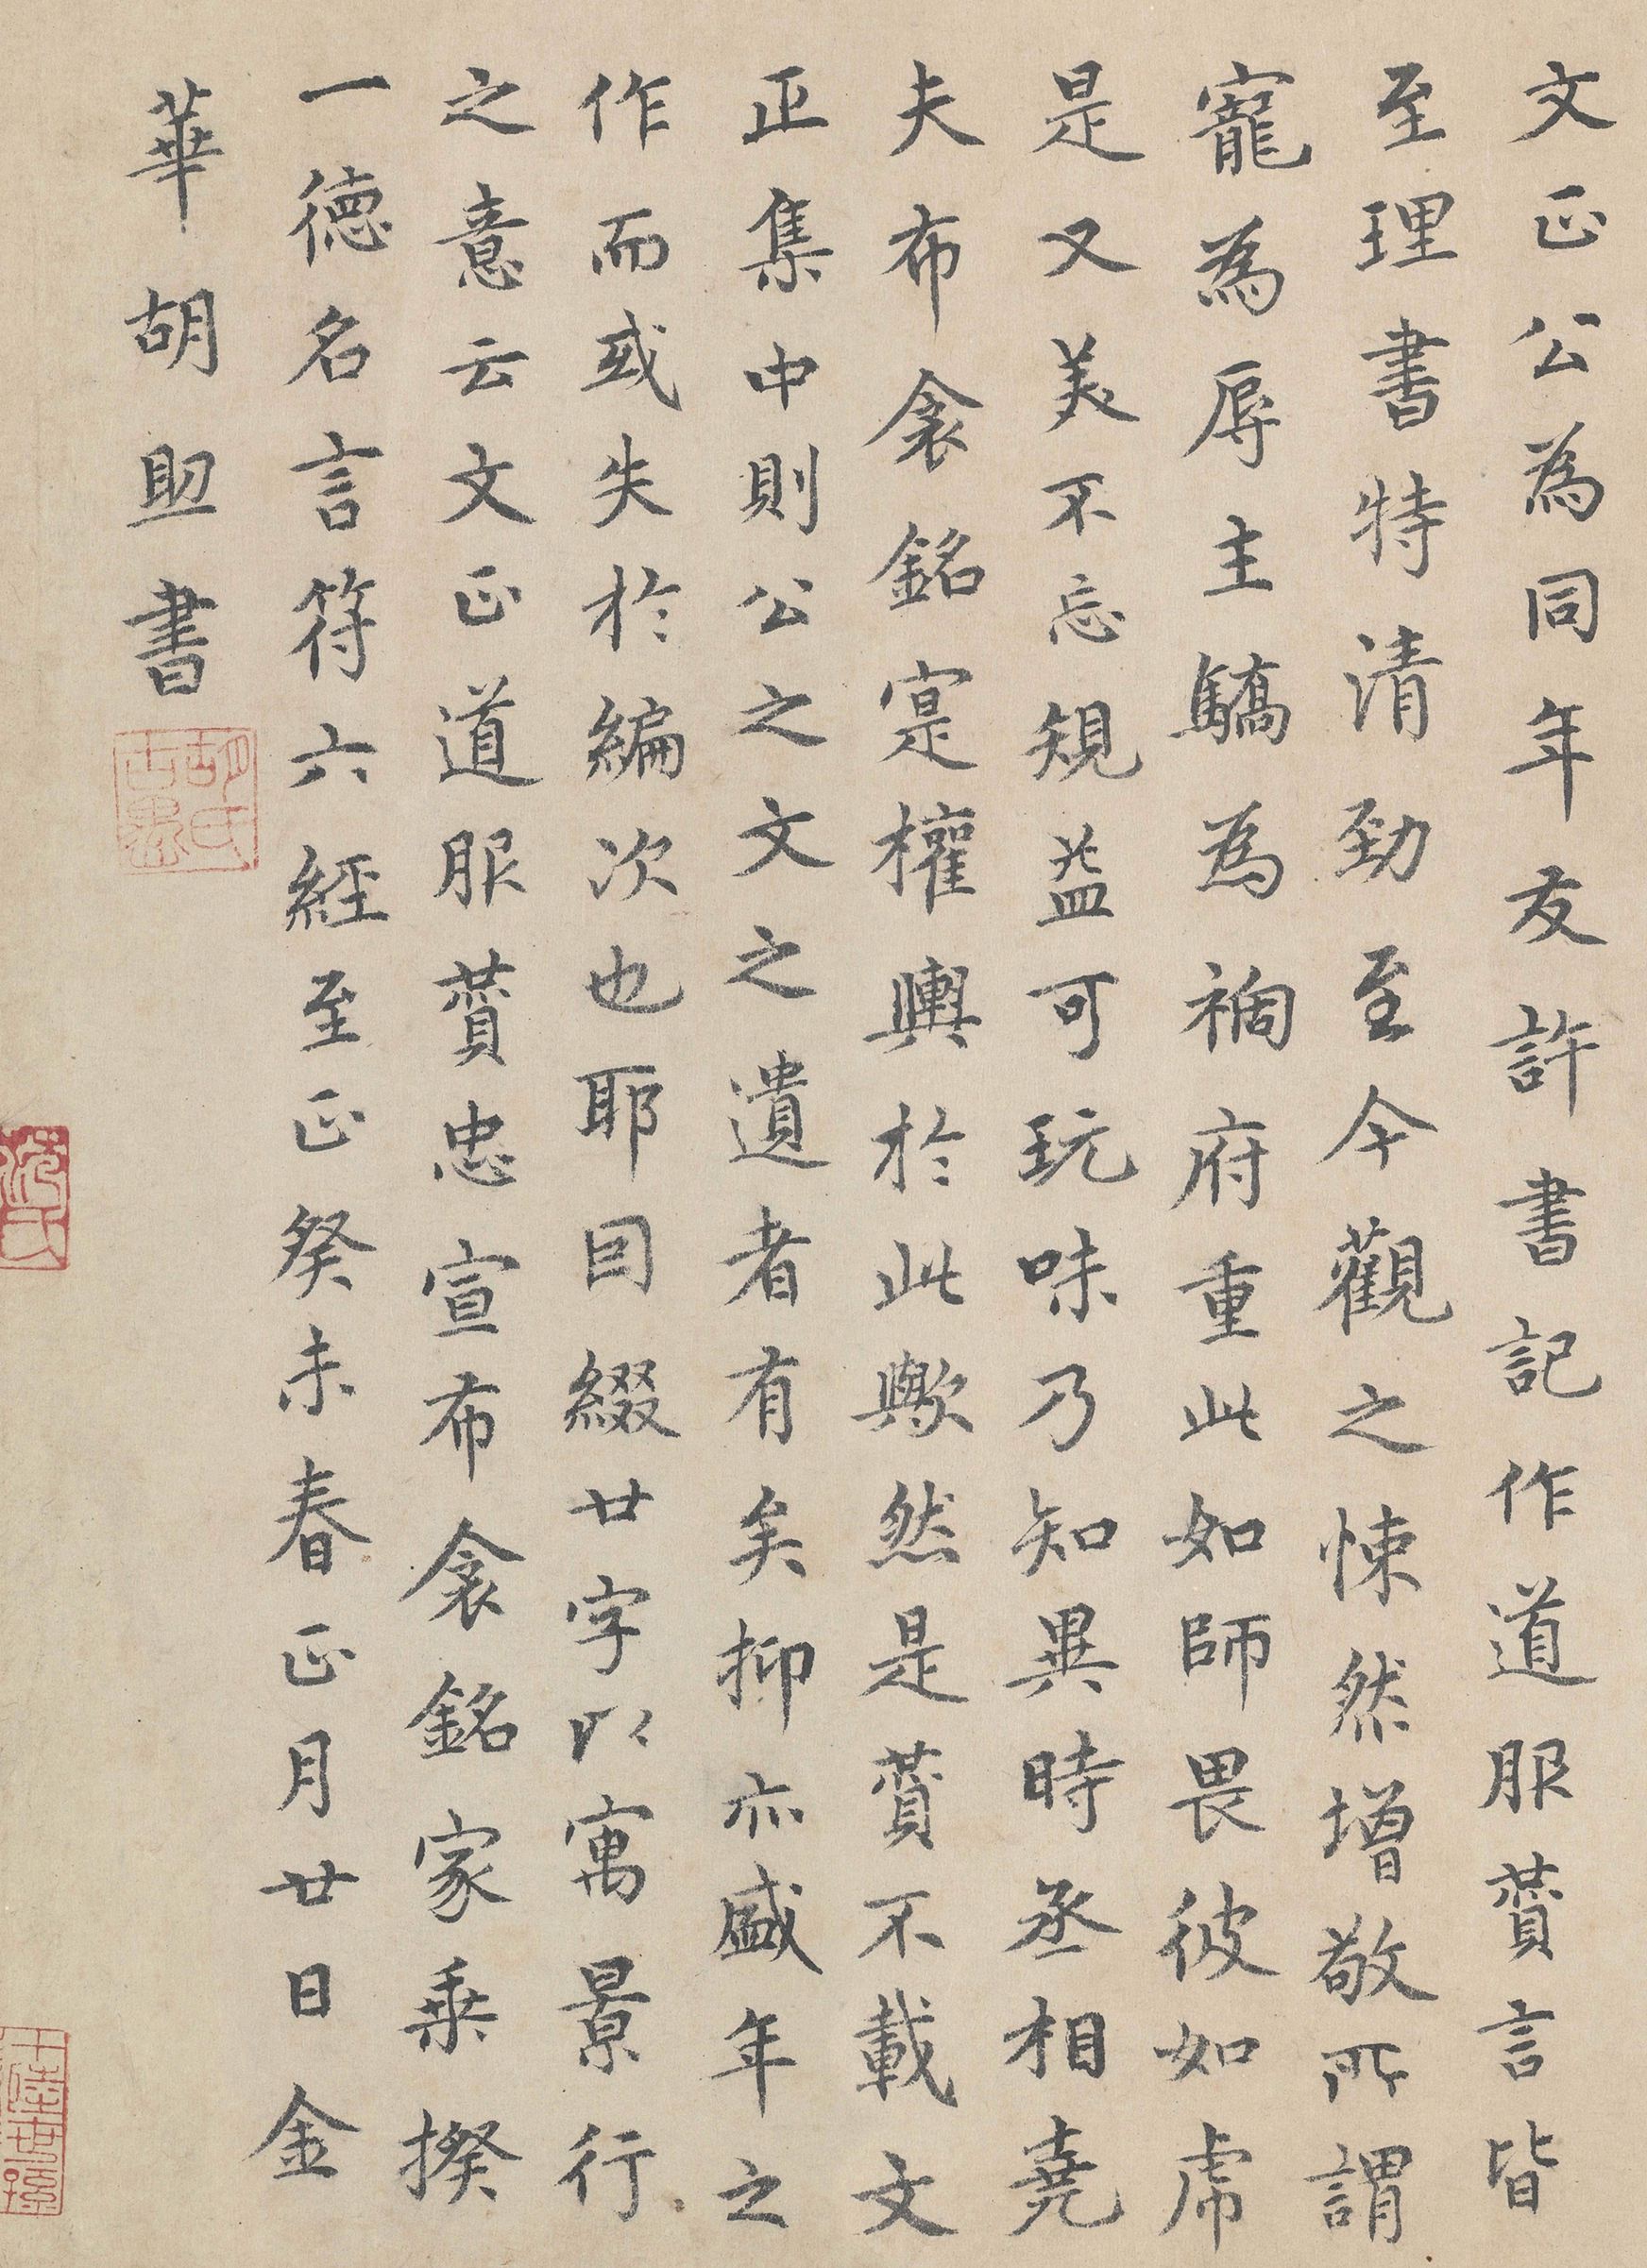 文正公為同年友許書記作道服賛言皆
至理書特清勁至今觀之悚然增敬所謂
寵為辱主驕為禍府重此如師畏彼如虎
是又美不忘規益可玩味乃知異時丞相堯
夫布衾銘寔權輿於此歟然是賛不載文
正集中則公之文之遺者有矣抑亦盛年之
作而或失於編次也耶因綴廿字以寓景行
之意云文正道服賛忠宣布衾銘家乗揆
一德名言符六經至正癸未春正月廿日金
華胡助書
胡氏古愚
沈氏